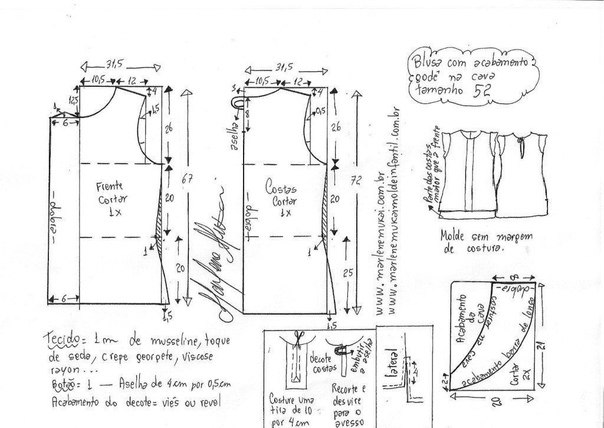 31,5
10,5 12
4
12,5
6
1,5
26
Frente
Cortar
1x
20
67
-dobra-
1
20
6
1,5
31,5
10,5 12
3
4
8
aselha
0,5
26
Costas
Cortar
1x
20
72
-dobra-
1
25
1,5
www.marlenemukai.com.br
www.marlenemukaimoldeinfantil.com.br
Blusa com acabamento
godê na cava
tamanho 52
Parte das costas
maior que a frente
Molde sem margem
de costura.
8
-dobra-
Acabamento
da cava
costurar na cava
acabamento barra de lenço
Cortar
2x
21
2
20
Tecido= 1 m de musseline, toque
de seda, crepe georgete, viscose
rayon...
Botão= 1 — Aselha de 4cm por 0,5cm
Acabamento do decote= viés ou revel
decote
costas
embutir
a aselha
Costure uma
tira de 10
por 4cm
Recorte e
desvire
para o
avesso
lateral